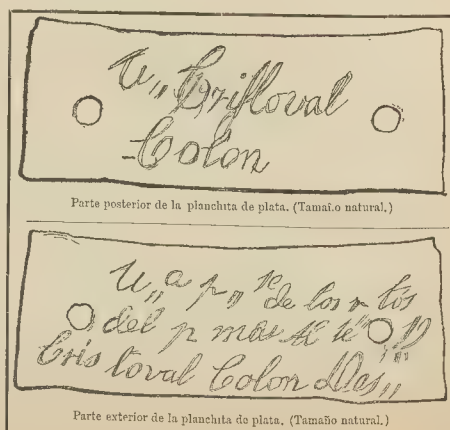 U,, Crifloval
Colon
Parte posterior de la planchita de plata. (Tamaño natural.)
U,, a p,, te de los r tos
del p mas Al te D
Cris toval Colon Des,,
Parte exterior de la planchita de plata. (Tamaño natural.)